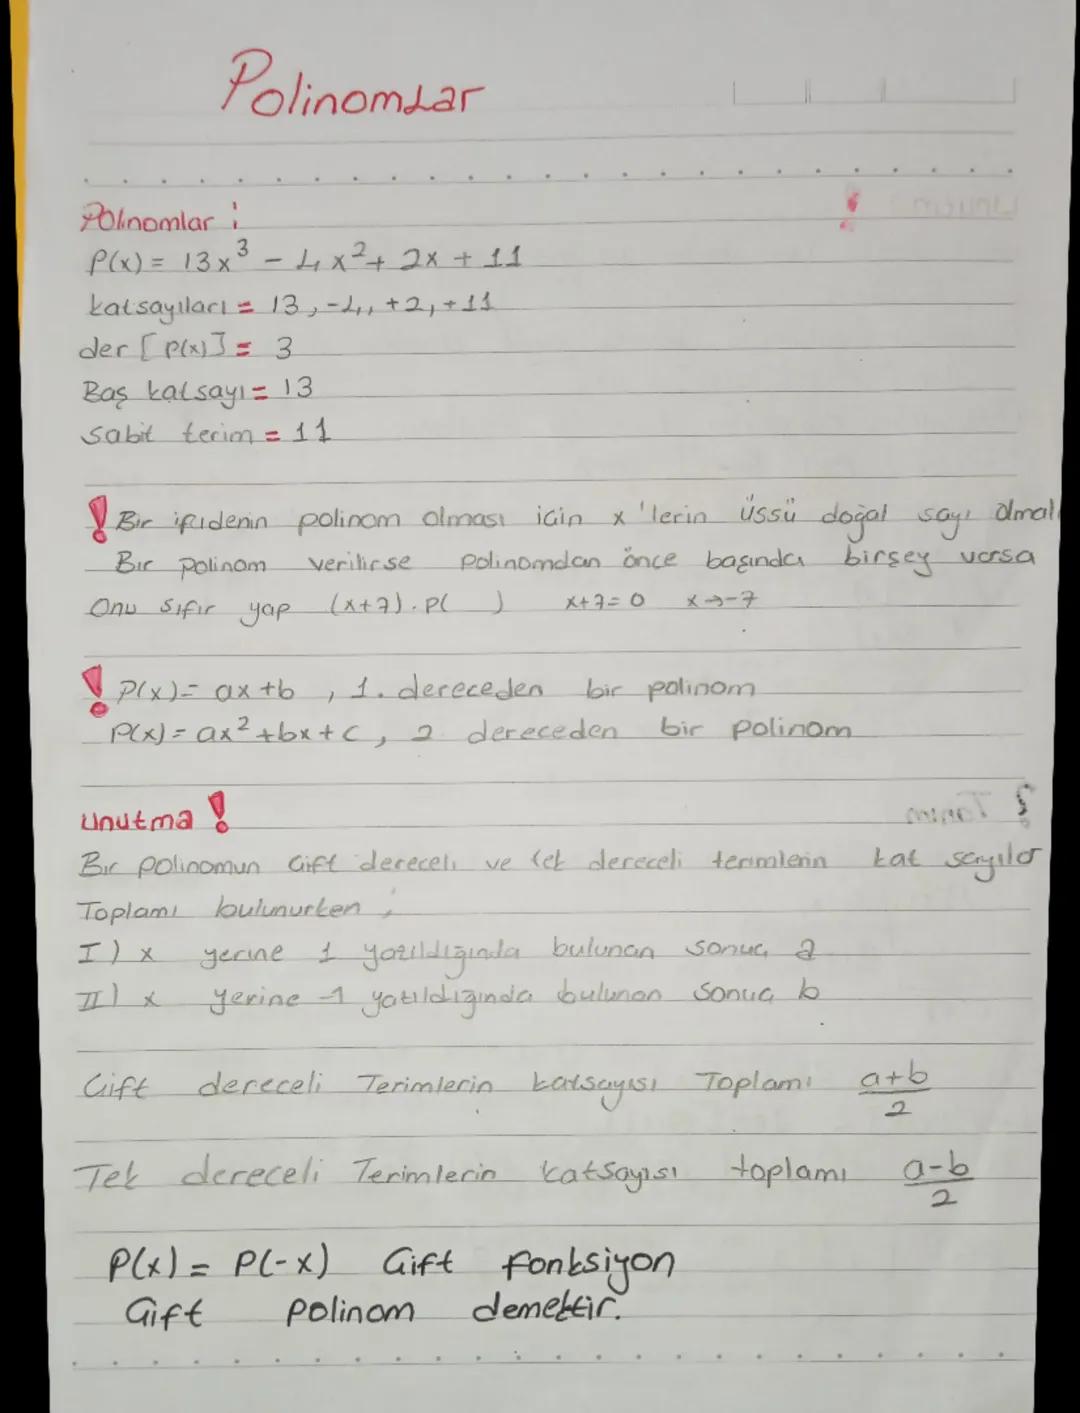 Polinomlar
Polinomlar :
P(x) = 13x³ - 4x² + 2x + 11
katsayıları = 13, -4, +2, +11
der [P(x)] = 3
Baş katsayı = 13
Sabit terim = 11
! Bir ifidenin polinom olması için x'lerin üssü doğal sayı olmalı
Bir polinom verilirse polinomdan önce başında birşey varsa
Onu sıfır yap (x+7).P( ) x+7=0 x→-7
! P(x) = ax+b, 1. dereceden bir polinom
P(x) = ax²+bx+c, 2 dereceden bir polinom
unutma !
Bir polinomun Çift dereceli ve tek dereceli terimlerin kat sayılar
Toplamı bulunurken,
I) x yerine 1 yazıldığında bulunan sonuç a
II) x yerine -1 yazıldığında bulunan sonuç b
Çift dereceli Terimlerin katsayısı Toplamı a+b/2
Tek dereceli Terimlerin katsayısı toplamı a-b/2
P(x) = P(-x) Çift fonksiyon
Çift polinom demektir.